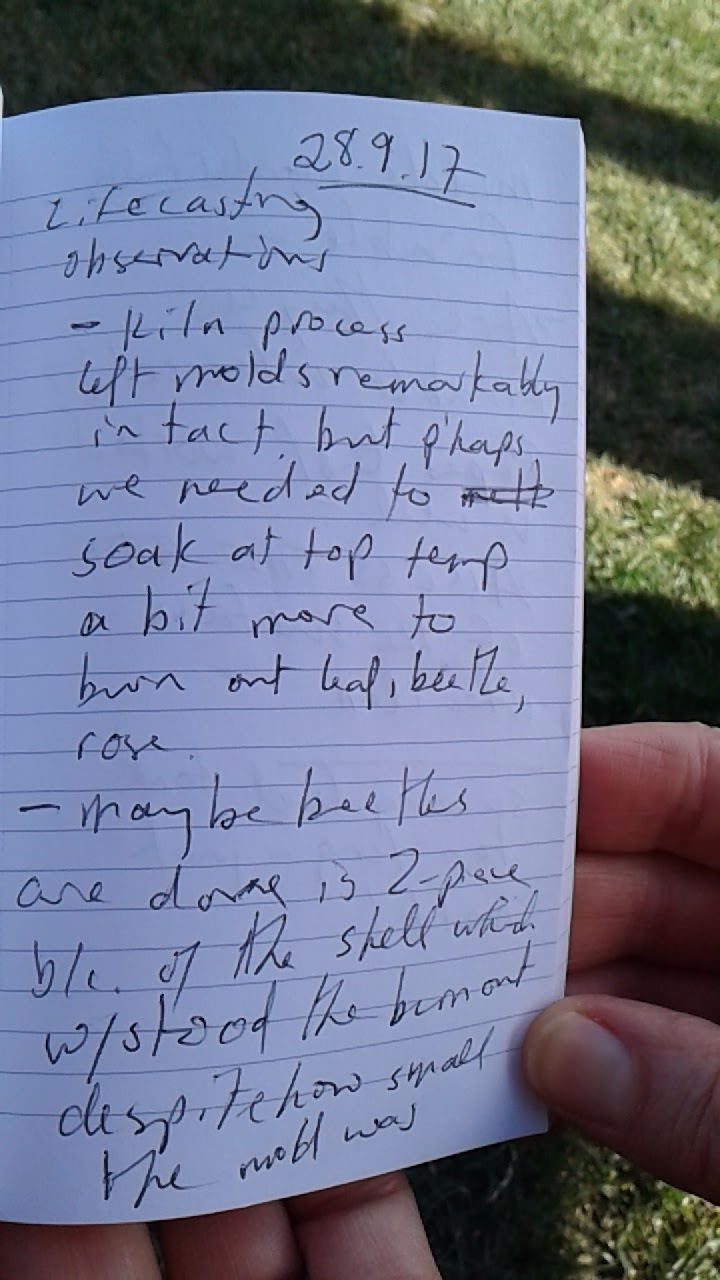 28.9.17
Lifecasting
observations
- kiln process
left molds remarkably
intact, but p'haps
we needed to
soak at top temp
a bit more to
burn out leaf, beetle,
rose.
- maybe beetles
are done is 2-piece
b/c. of the shell which
w/stood the burnout
despite how small
the mold was